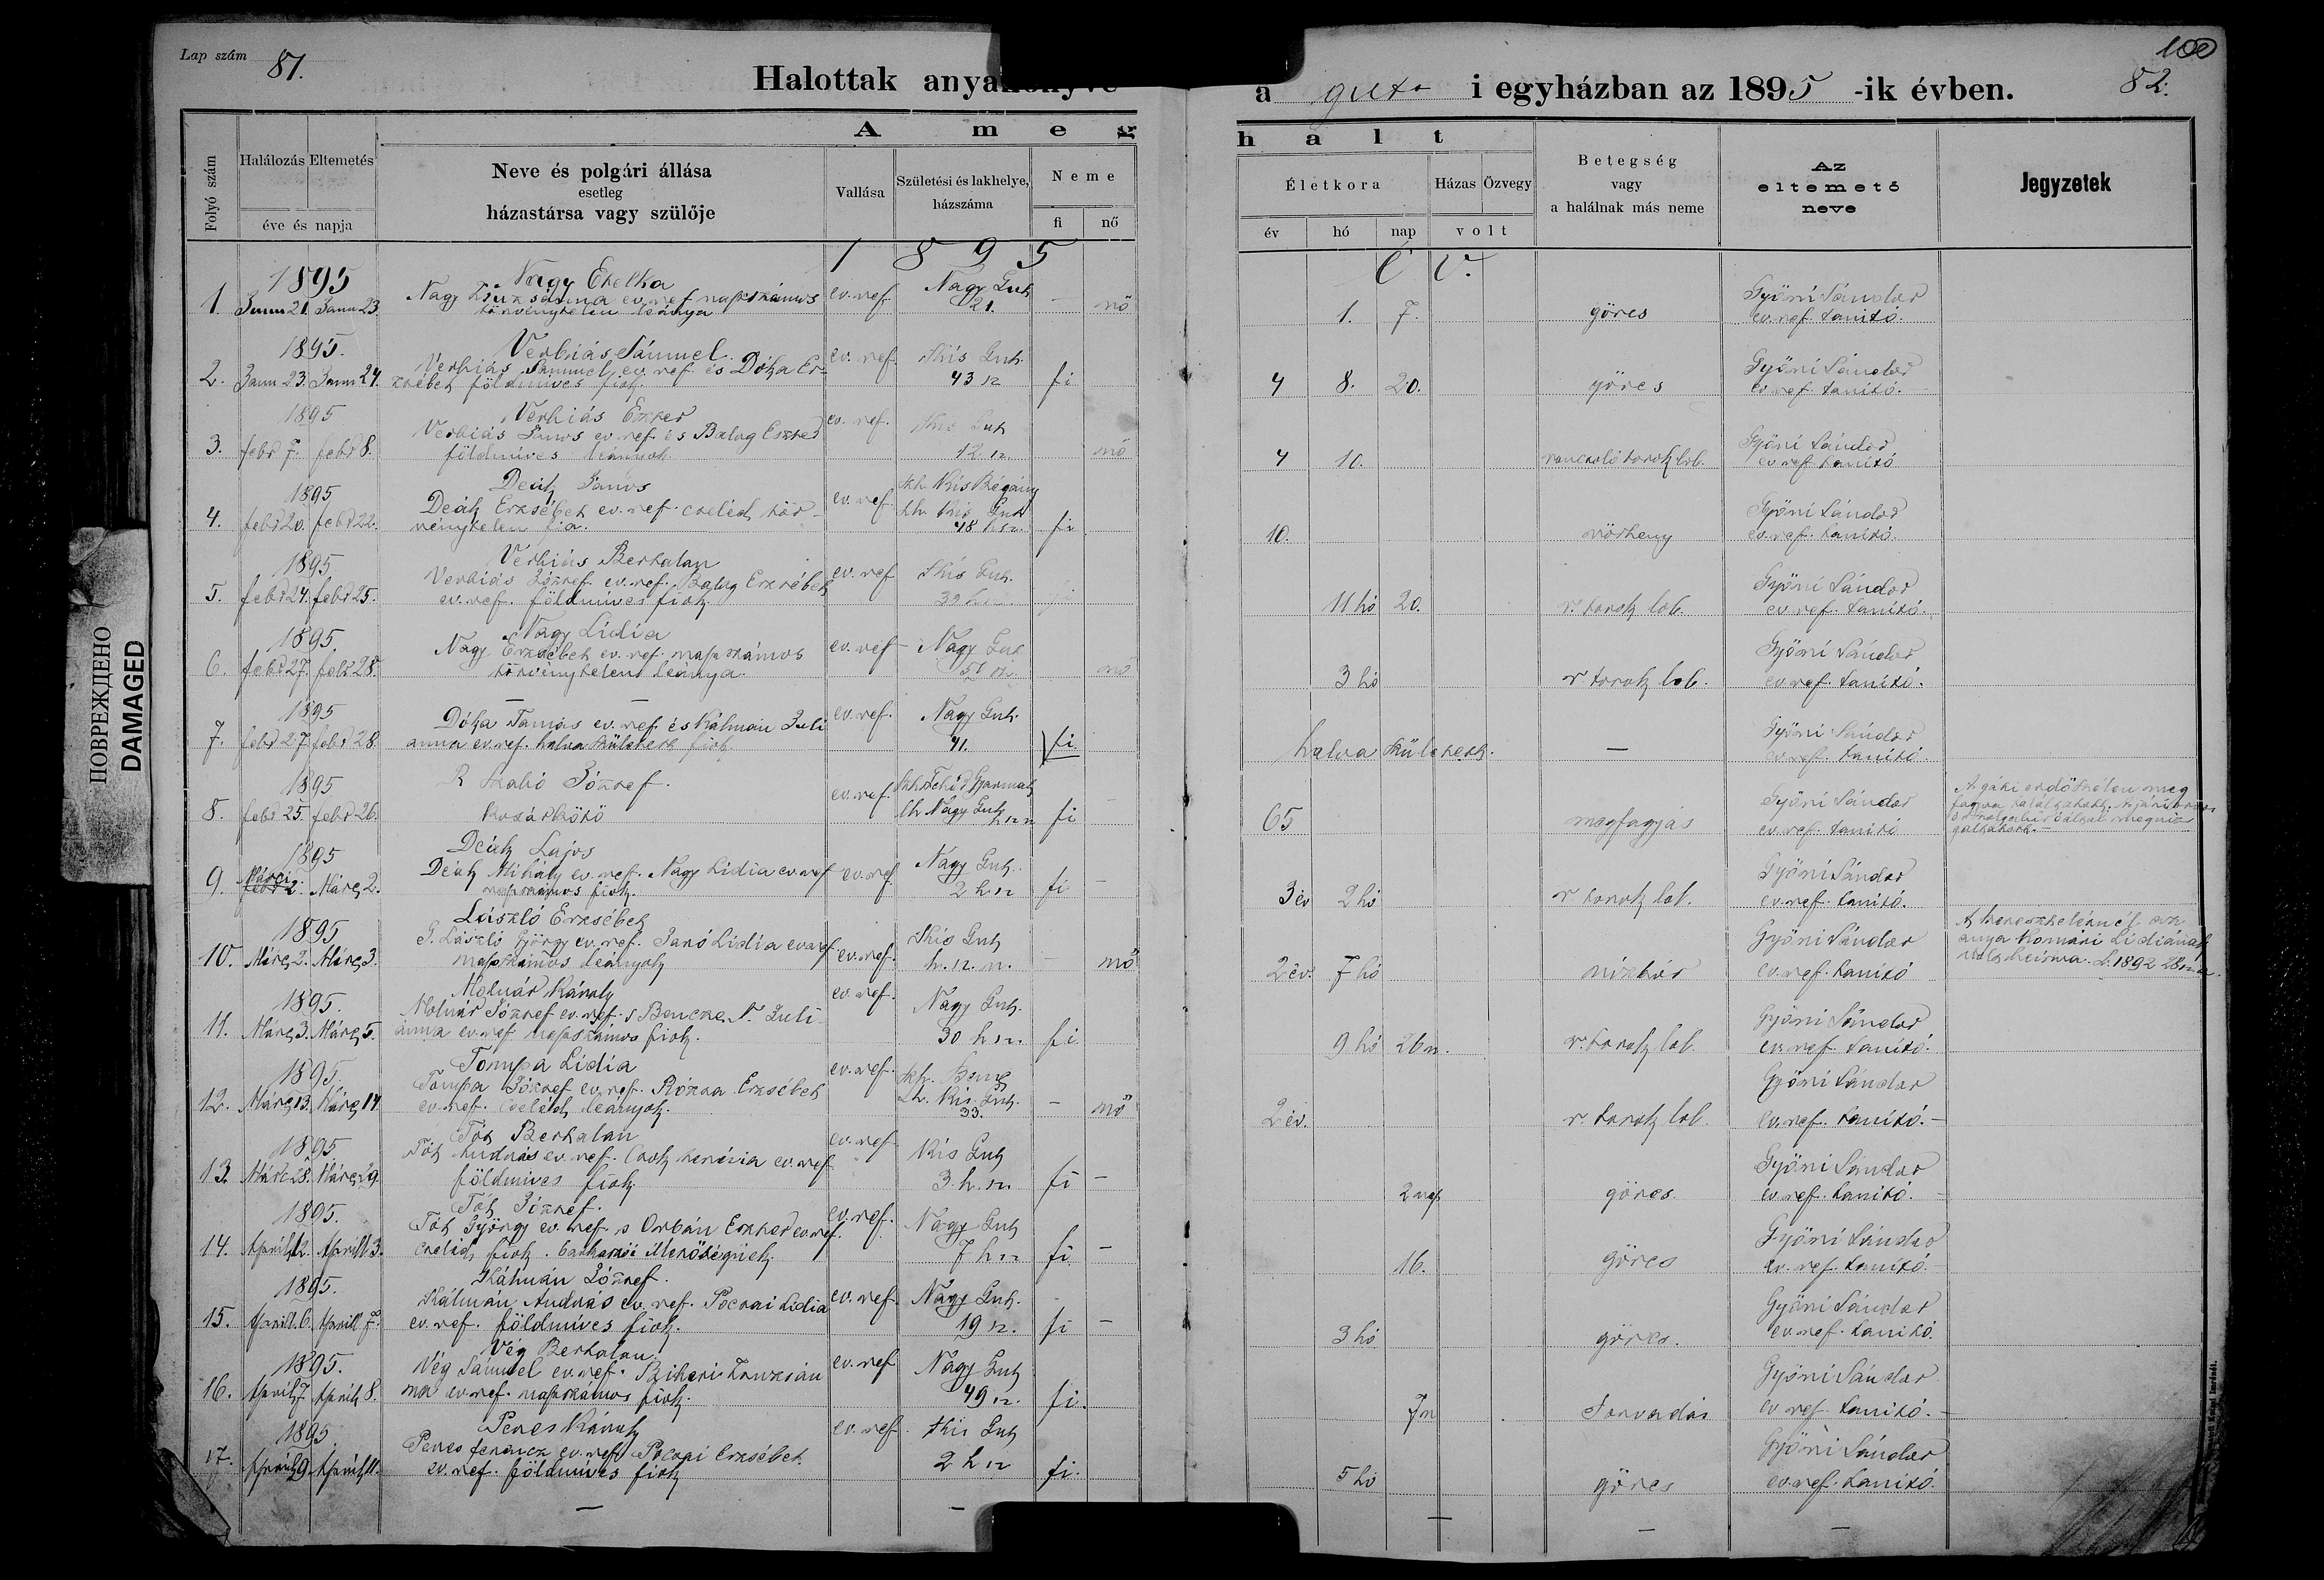 Lap szám 81.
Halottak anyakönyve
a guti i egyházban az 1895 -ik évben.
100
82.
A meg
halt
Folyó szám
Halálozás Eltemetés
éve és napja
Neve és polgári állása
esetleg
házastársa vagy szülője
Vallása
Születési és lakhelye,
házszáma
Neme
fi nő
Életkora
év hó nap
Házas Özvegy
volt
Betegség
vagy
a halálnak más neme
Az
eltemető
neve
Jegyzetek
1895 év.
1895 Nagy Etelka
Nagy Zsuzsánna ev. ref. napszámos ev. ref. Nagy Gut
1. Janu 21. Janu 23. törvénytelen leánya 21. – nő 1. 7. göres Gyöni Sándor
ev. ref. tanító.
1895. Verbiás Sámuel
Verbiás Sámuel ev. ref. és Dóka Er- ev. ref. Kis Gut.
2. Janu 23. Janu 24. zsébet földmives fiok. 43 sz fi 4 8. 20. göres Gyöni Sándor
ev. ref. tanító.
1895 Verbiás Eszter
Verbiás János ev. ref. és Balog Eszter ev. ref. Kis Gut
3. febr 7. febr 8. földmives leányok 12. sz. nő 4 10. ronctoló torok lob. Gyöni Sándor
ev. ref. tanító
1895 Deák János
Deák Erzsébet ev. ref. cseléd tör- ev. ref. szh. Kis Begány
lh. Kis Gut
4. febr 20. febr 22. vénytelen fia. 48 h sz. fi 10. vörheny Gyöni Sándor
ev. ref. tanító.
1895 Verbiás Bertalan
Verbiás József ev. ref. Balog Erzsébet ev. ref Kis Gut.
5. febr 24. febr 25. ev. ref. földmives fiok. 39 h sz. fi 11 hó 20. r. torok lob. Gyöni Sándor
ev. ref. tanító.
1895. Nagy Lidia
Nagy Erzsébet ev. ref. napszámos ev. ref Nagy Gut
6. febr 27. febr 28. törvénytelen leánya. 51 sz. nő 3 hó r. torok lob. Gyöni Sándor
ev. ref. tanító.
1895 – –
Dóka Tamás ev. ref. és Kálmán Juli ev. ref. Nagy Gut.
7. febr 27. febr 28. anna ev. ref. halva született fiok. 41. fi halva született. – Gyöni Sándor
ev. ref. tanító.
1895 R Szabó József ev. ref. szh. Fehér Gyarmat
8. febr 25. febr 26. Kosárkötő lh. Nagy Gut h sz n fi 65 megfagyás Gyöni Sándor
ev. ref. tanító
A gáti erdőszélen meg
fagyva találtatott.
1895 Deák Lajos
Deák Mihály ev. ref. Nagy Lidia ev. ref ev. ref. Nagy Gut.
9. Márci 2. Márc 2. napszámos fiok. 2 h sz fi – 3 év 2 hó r torok lob. Gyöni Sándor
ev. ref. tanító.
1895 László Erzsébet
G. László György ev. ref. Janó Lidia ev. ref ev. ref. Kis Gut
10. Márc 2. Márc 3. napszámos leányok h. sz. n. – nő 2 év. 7 hó Gyöni Sándor
ev. ref. tanító
A keresztelésnél az
anya Komári Lidiának
1895. Molnár Károly
Molnár József ev. ref. s Bencze N. Juli- ev. ref. Nagy Gut.
11. Márc 3. Márc 5. ánna ev. ref. napszámos fiok. 30 h sz. fi 9 hó 26 n. r. torok lob. Gyöni Sándor
ev. ref. tanító.
1895. Tompa Lidia
Tompa József ev. ref. Rózsa Erzsébet ev. ref. szh. Bene
12. Márc 13. Márc 14. ev. ref. cseléd leányok. Lh. Kis Gut.
33. – nő 2 év. r. torok lob. Gyöni Sándor
ev. ref. tanító. –
1895. Tót Bertalan
Tót András ev. ref. ev. ref. ev. ref Kis Gut
13. Márc 28. Márc 29. földmives fiok 3. h. sz. fi – 2 nap göres Gyöni Sándor
ev. ref. tanító. –
1895. Tót József.
Tót György ev. ref. s Orbán Eszter ev. ref. ev. ref. Nagy Gut
14. Április 12. Április 13. cseléd fiok. 7 h sz fi – 16. göres Gyöni Sándor
ev. ref. tanító. –
1895. Kálmán József.
Kálmán András ev. ref. Pocsai Lidia ev. ref. Nagy Gut.
15. April. 6. April 7. ev. ref. földmives fiok. 19 sz. fi – 3 hó göres. Gyöni Sándor
ev. ref. tanító.
1895. Vég Bertalan
Vég Sámuel ev. ref. Bihari Zsuzsán ev. ref Nagy Gut
16. April 7 April 8. na ev. ref. napszámos fiok. 49 sz. fi. 7 n Sorvadás Gyöni Sándor
ev ref. tanító. –
1895 Penes Károly
Penes ferencz ev. ref. Pocsai Erzsébet ev. ref. Kis Gut
17. April 9. April 11. ev. ref. földmives fiok 2 h sz fi. 5 hó göres Gyöni Sándor
ev. ref. tanító.
ПОВРЕЖДЕНО
DAMAGED